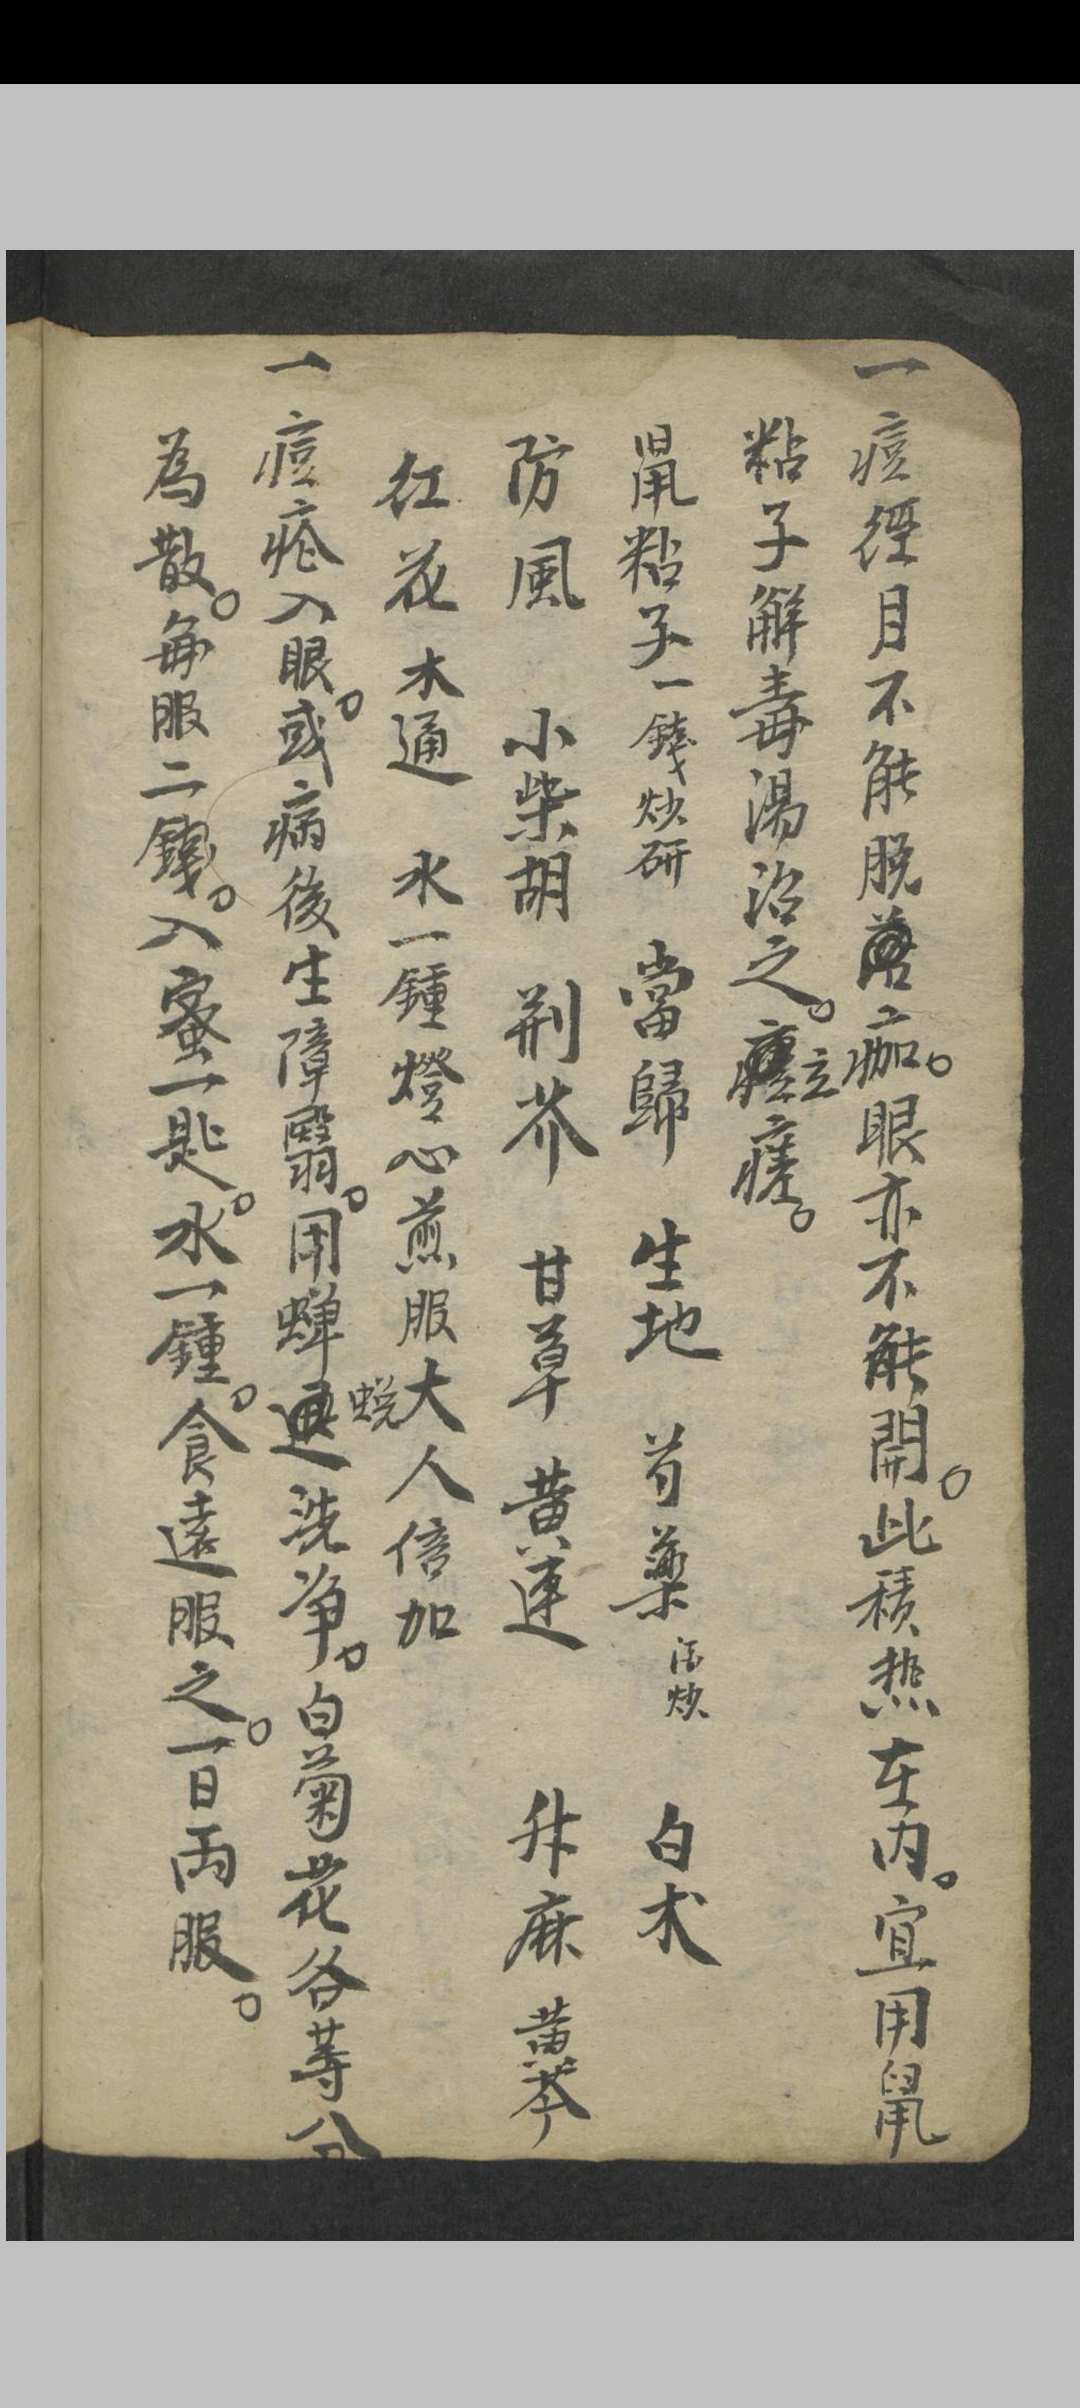 一痘經月不能脫落痂。眼亦不能開。此積热在内。宜用鼠
粘子解毒湯治之。立痊。
鼠粘子一錢炒研 當歸 生地 芍藥酒炒 白朮
防風 小柴胡 荆芥 甘草 黄連 升麻 黄芩
红花 木通 水一鍾燈心煎服大人倍加
一痘瘡入眼。或病後生障翳。用蟬蜕洗净。白菊花各等分
為散。每服二錢。入蜜一匙。水一鍾。食遠服之。一日两服。